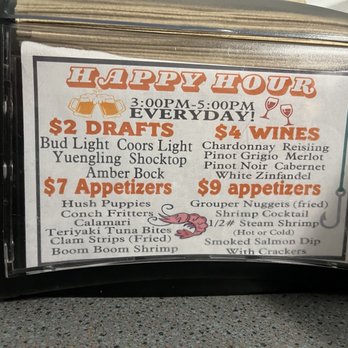 HAPPY HOUR
3:00PM-5:00PM
EVERYDAY!
$2 DRAFTS
Bud Light Coors Light
Yuengling Shocktop
Amber Bock
$4 WINES
Chardonnay Reisiing
Pinot Grigio Merlot
Pinot Noir Cabernet
White Zinfandel
$7 Appetizers
Hush Puppies
Conch Fritters
Calamari
Teriyaki Tuna Bites
Clam Strips (Fried)
Boom Boom Shrimp
$9 appetizers
Grouper Nuggets (fried)
Shrimp Cocktail
1/2# Steam Shrimp
(Hot or Cold)
Smoked Salmon Dip
With Crackers